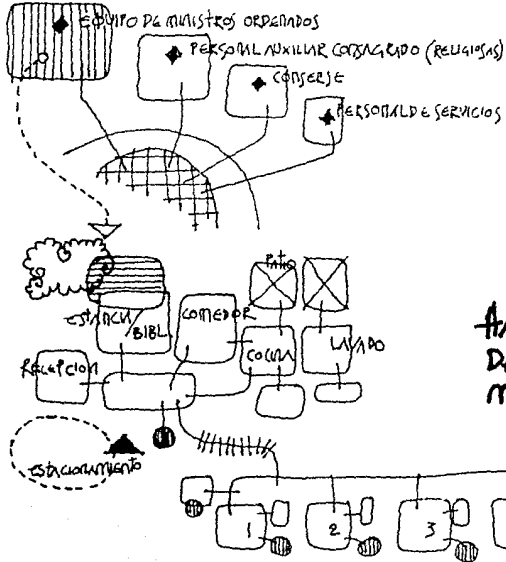 EQUIPO DE MINISTROS ORDENADOS
PERSONAL AUXILIAR CONSAGRADO (RELIGIOSAS)
CONSERJE
PERSONAL DE SERVICIOS
PATIO
ESTANCIA/
BIBL
COMEDOR
COCINA
LAVADO
RECEPCION
ESTACIONAMIENTO
1
2
3